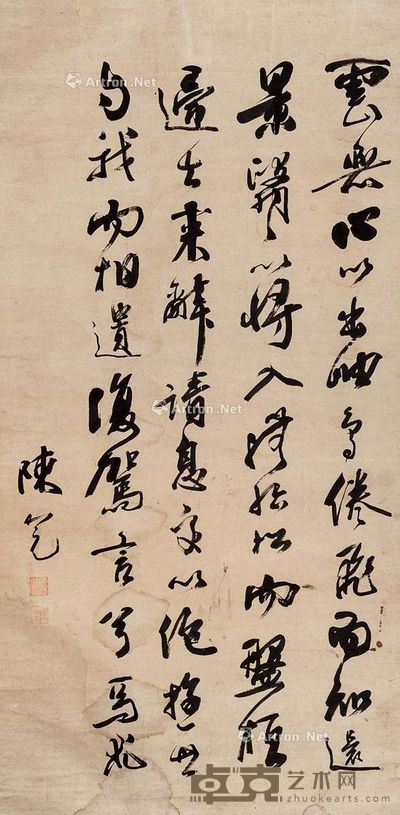 雲無心以出岫鳥倦飛而知還
景翳〻以將入撫孤松而盤桓
歸去来辭請息交以絶遊世
與我而相遺復駕言兮焉求
陳
Artron.Net
Artron.Net
Artron.Net
Artron.Net
卓克艺术网
zhuokearts.com